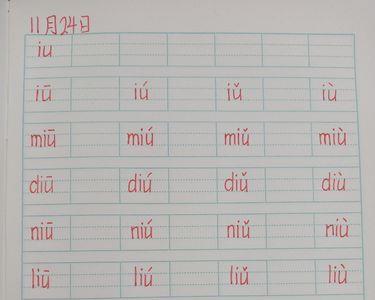 11月24日
iu
iū iú iǔ iù
miū miú miǔ miù
diū diú diǔ diù
niū niú niǔ niù
liū liú liǔ liù